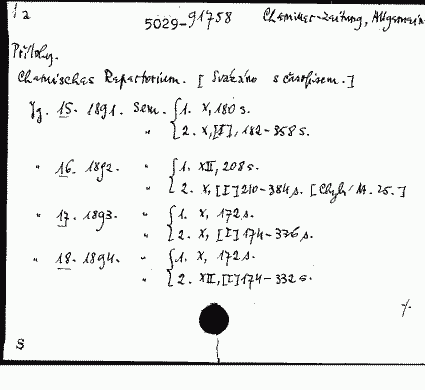 1a 5029-91758 Chemiker-Zeitung, Allgemein
Přílohy.
Chemisches Repertorium. [ Svázáno s časopisem. ]
Jg. 15. 1891. Sem. 1. X, 180 s.
" 2. X, [I], 182-358 s.
" 16. 1892. " 1. XII, 208 s.
" 2. X, [I] 210-384 s. [ Chybí čís. 25. ]
" 17. 1893. " 1. X, 172 s.
" 2. X, [I] 174-336 s.
" 18. 1894. " 1. X, 172 s.
" 2. XII, [I] 174-332 s.
%
S